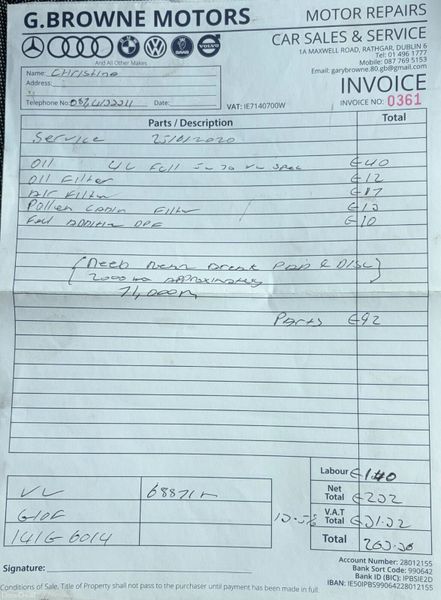 G.BROWNE MOTORS
MOTOR REPAIRS
CAR SALES & SERVICE
1A MAXWELL ROAD, RATHGAR, DUBLIN 6
Tel: 01 496 1777
Mobile: 087 769 5153
Email: garybrowne.80.gb@gmail.com
SAAB
VOLVO
And All Other Makes
INVOICE
Name: Christine
Address:
Telephone No:
Date:
VAT: IE7140700W
INVOICE NO: 0361
Parts / Description
Total
Service 25/11/2020
Oil 4L Full 5w30 VW Spec €40
Oil Filter €12
Air Filter €17
Pollen Cabin Filter €13
Fuel Additive DPF €10
(Need New Break Pad & Disc)
2000 km Approximately
71,000
Parts €92
Labour €140
VW 68871k
Net Total €232
GOLF
13.5% V.A.T Total €31.32
141G 6014
Total 263.32
Account Number: 28012155
Bank Sort Code: 990642
Bank ID (BIC): IPBSIE2D
IBAN: IE50IPBS99064228012155
Signature:
Conditions of Sale, Title of Property shall not pass to the purchaser until payment has been made in full